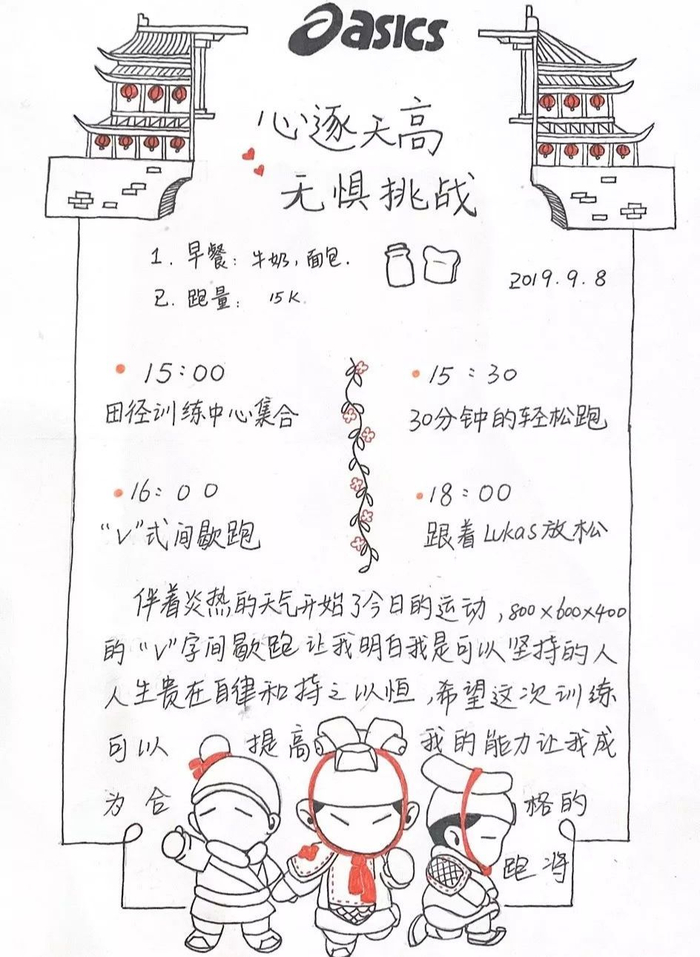 asics
心逐天高
无惧挑战
1. 早餐: 牛奶, 面包.
2. 跑量: 15K.
2019.9.8
15:00
田径训练中心集合
15:30
30分钟的轻松跑
16:00
"V"式间歇跑
18:00
跟着Lukas放松
伴着炎热的天气开始了今日的运动,800×600×400
的"V"字间歇跑让我明白我是可以坚持的人
人生贵在自律和持之以恒,希望这次训练
可以提高我的能力让我成
为合格的
跑将